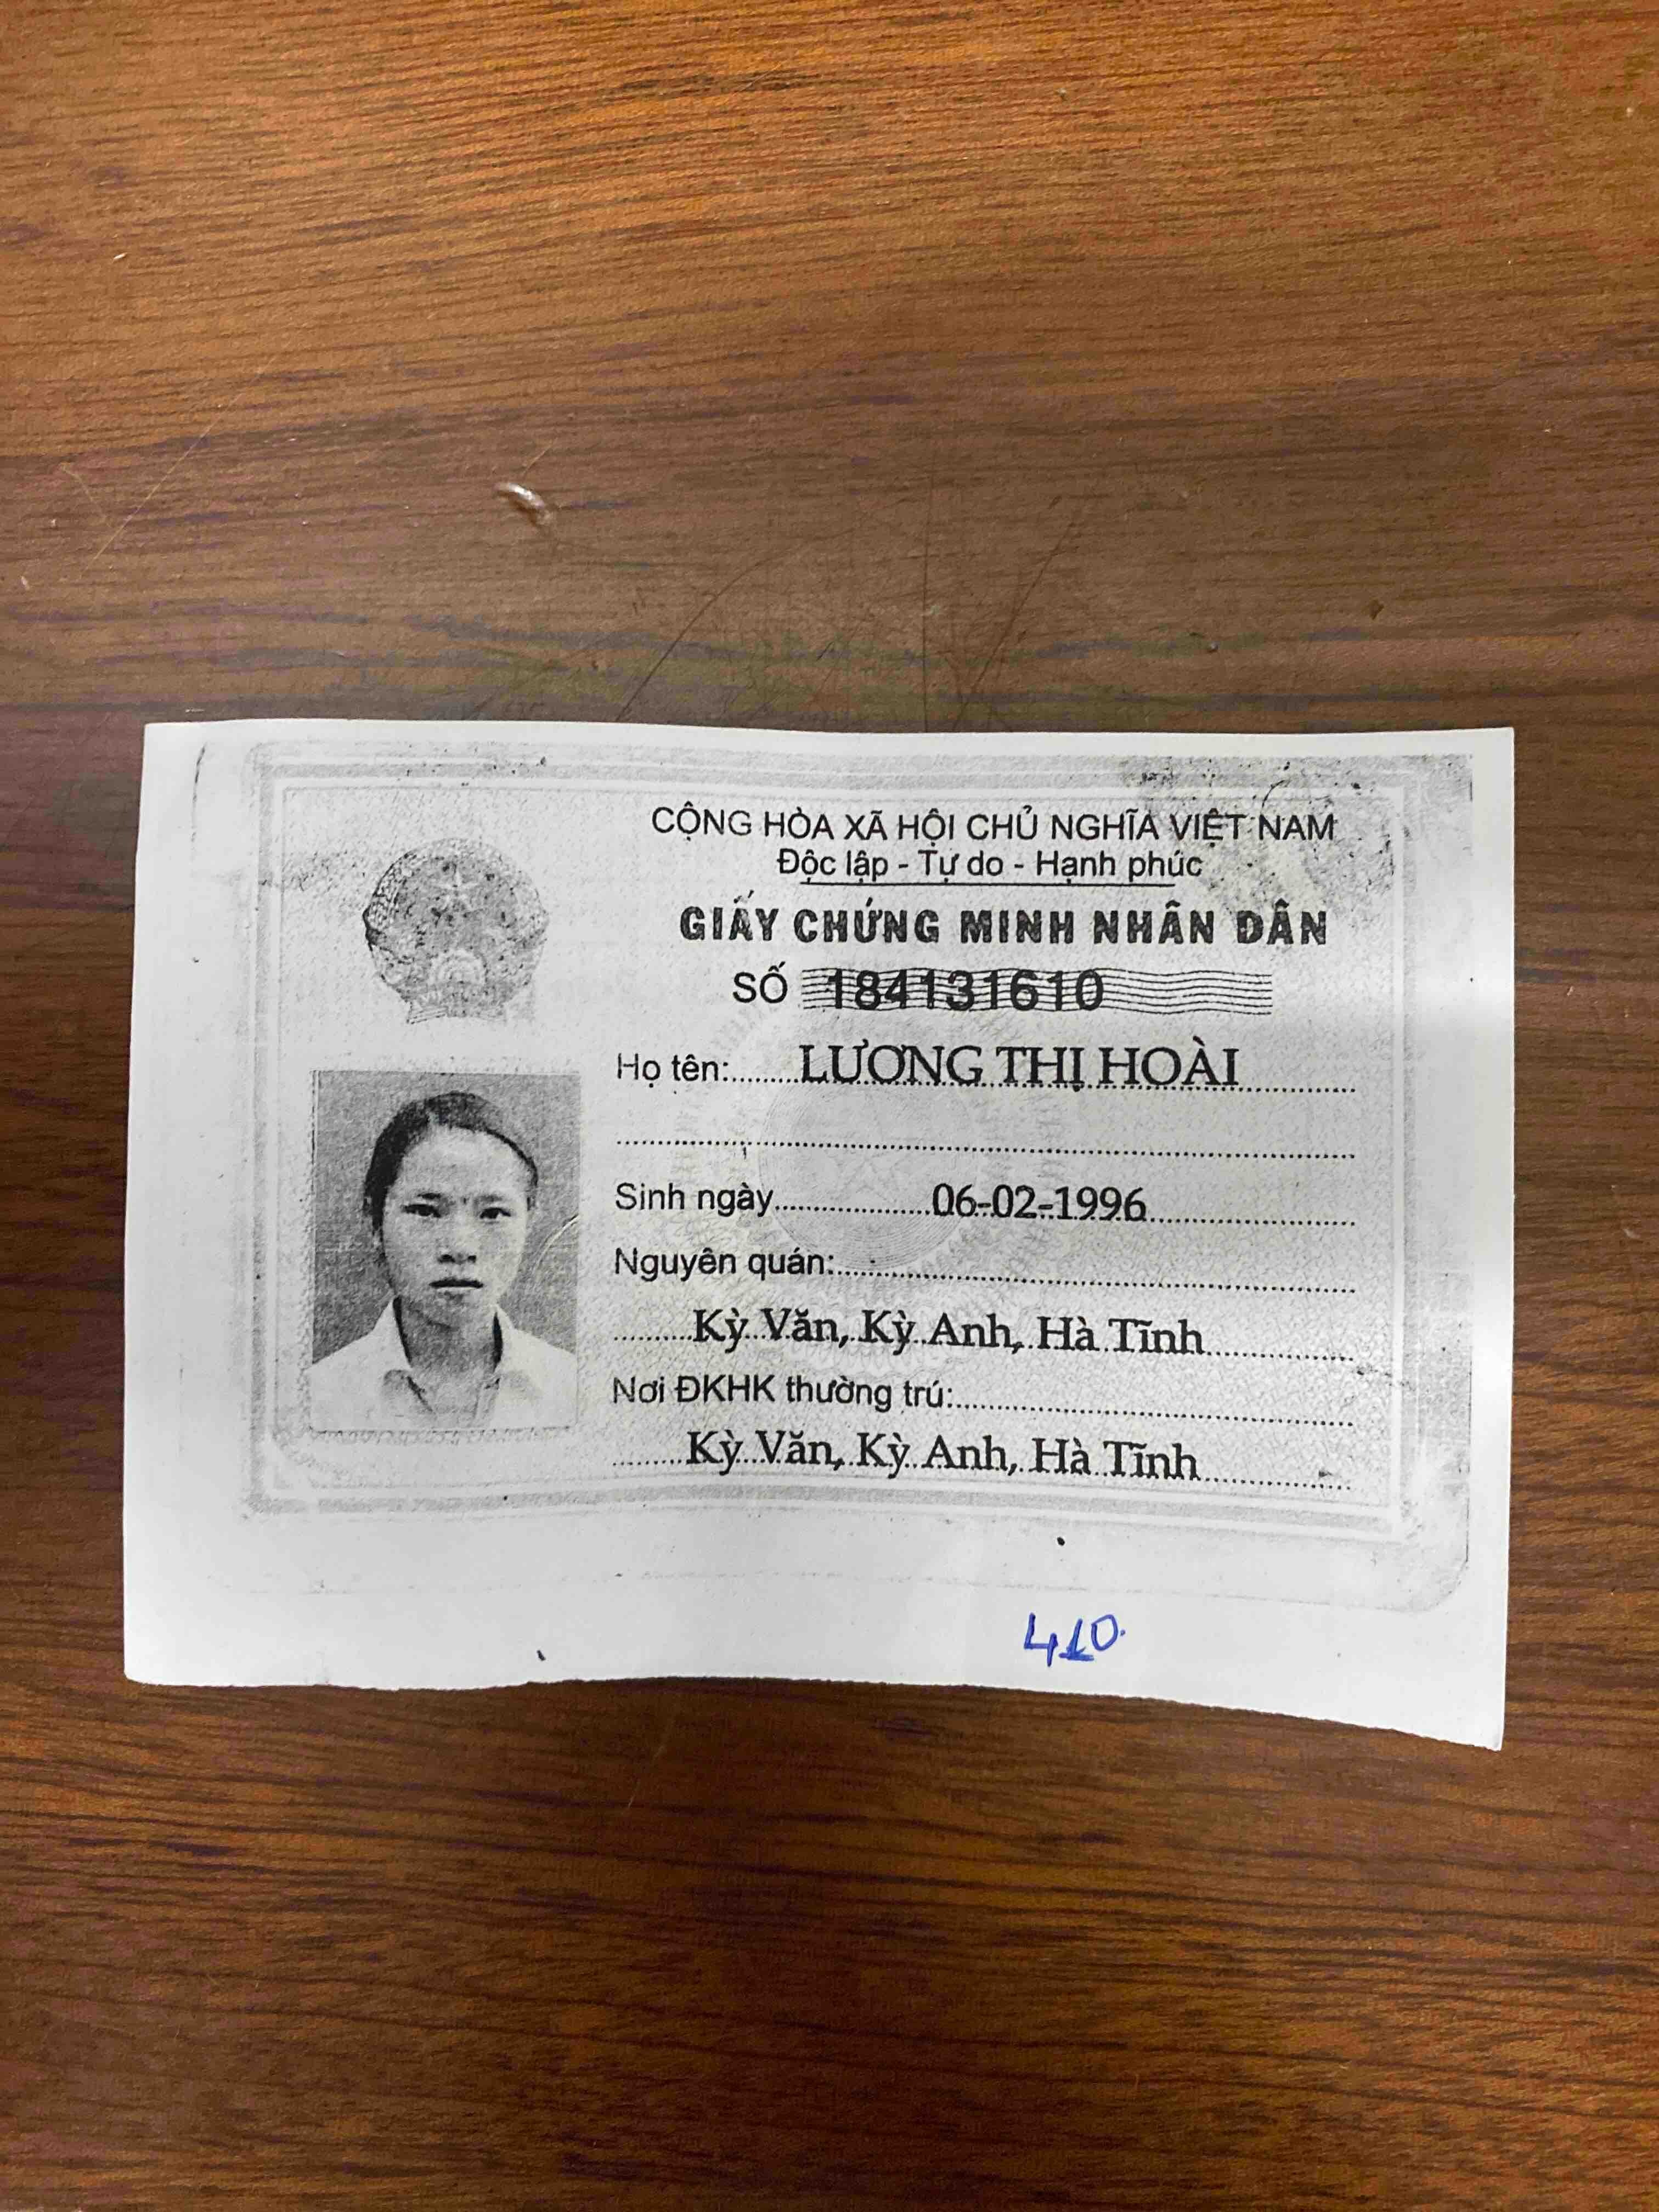 CỘNG HÒA XÃ HỘI CHỦ NGHĨA VIỆT NAM
Độc lập - Tự do - Hạnh phúc
GIẤY CHỨNG MINH NHÂN DÂN
SỐ 184131610
Họ tên: LƯƠNG THỊ HOÀI
Sinh ngày 06-02-1996
Nguyên quán:
Kỳ Văn, Kỳ Anh, Hà Tĩnh
Nơi ĐKHK thường trú:
Kỳ Văn, Kỳ Anh, Hà Tĩnh
410.